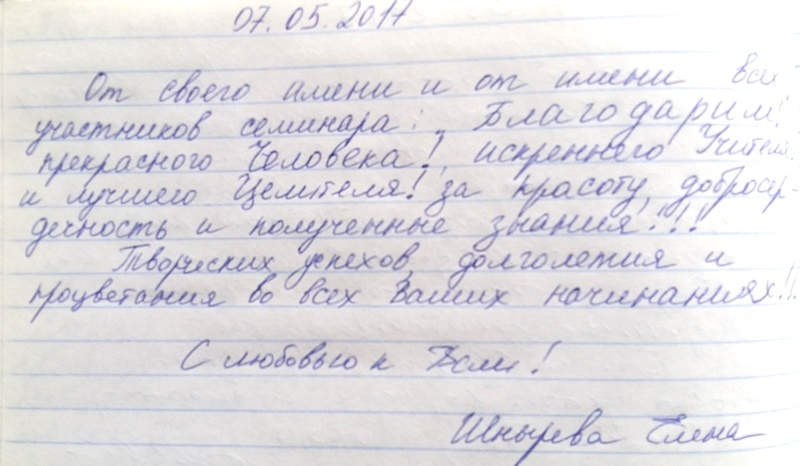 07.05.2017
От своего имени и от имени всех
участников семинара: Благодарим!
прекрасного Человека!, искреннего Учителя
и лучшего Целителя! за красоту, добросер-
дечность и полученные знания!!!
Творческих успехов, долголетия и
процветания во всех Ваших начинаниях!!
С любовью к
Шнырева Елена